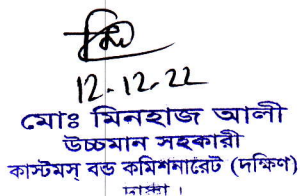 12-12-22
মোঃ মিনহাজ আলী
উচ্চমান সহকারী
কাস্টমস্ বন্ড কমিশনারেট (দক্ষিণ)
ঢাকা ।